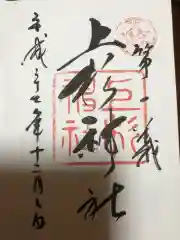 第一義
上杉神社
平成二十七年十二月八日